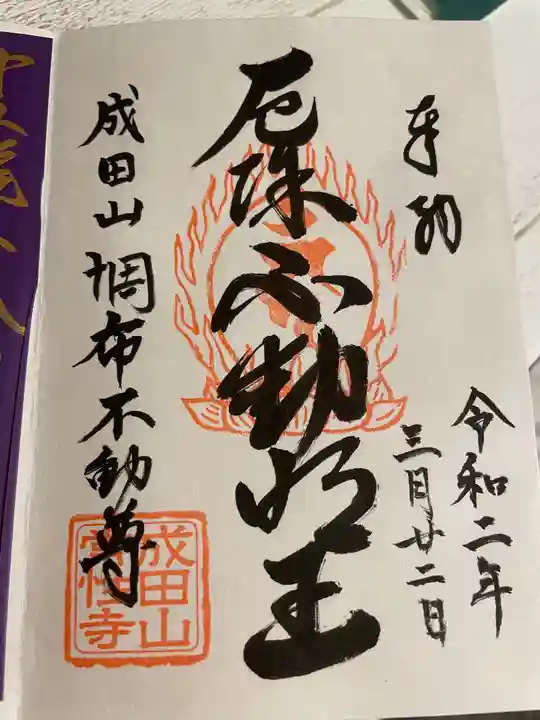 奉拝
令和二年
三月廿二日
厄除不動明王
成田山調布不動尊
成田山
常性寺